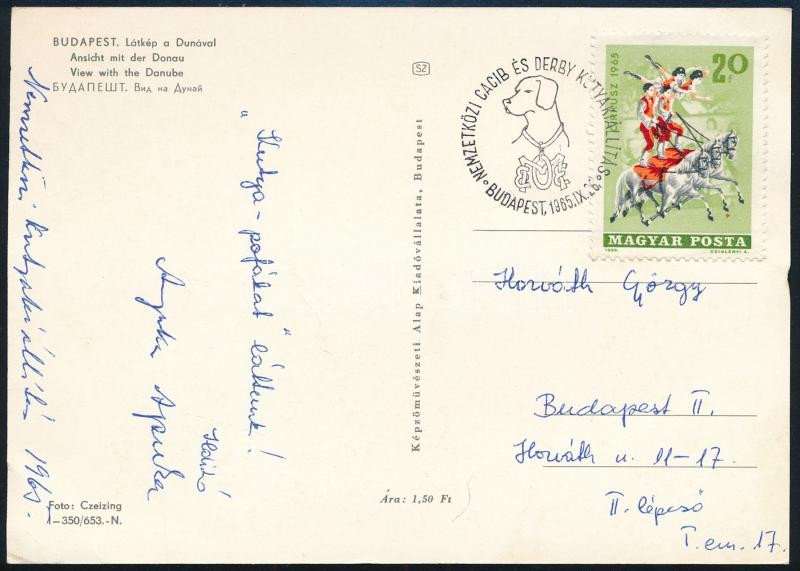 BUDAPEST. Látkép a Dunával
Ansicht mit der Donau
View with the Danube
БУДАПЕШТ. Вид на Дунай
Nemzetközi kutyakiállítás 1965.
„Kutya-pofákat” láttunk!
Anyuka Apuka
Foto: Czeizing
I–350/653.-N.
Képzőművészeti Alap Kiadóvállalata, Budapest
Ára: 1,50 Ft
SZ
NEMZETKÖZI CACIB ÉS DERBY KUTYAKIÁLLÍTÁS
BUDAPEST, 1965.IX.26.
CIRKUSZ 1965
20 f
MAGYAR POSTA
1965. CZIGLÉNYI Á.
Horváth György
Budapest II.
Horváth u. 11–17.
II. lépcső
I. em. 17.